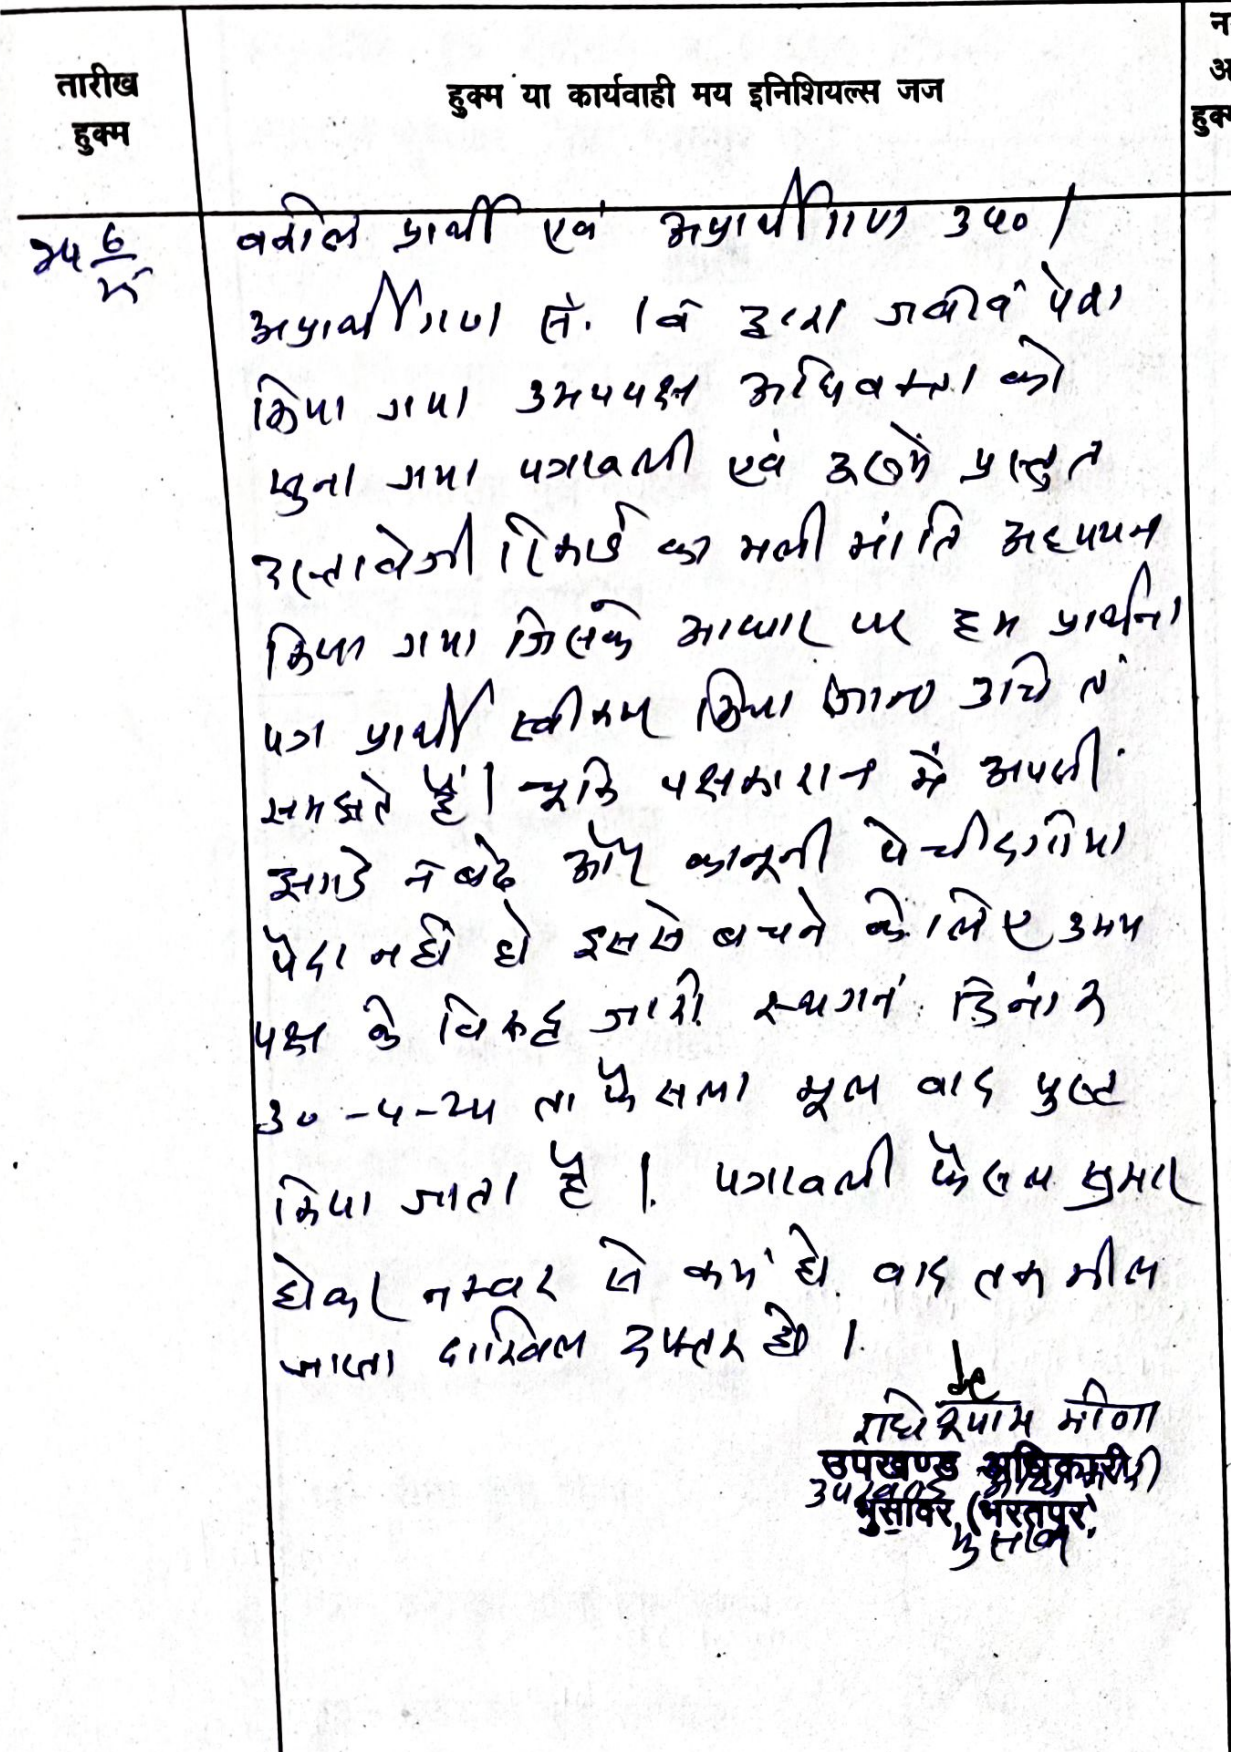 तारीख
हुक्म
हुक्म या कार्यवाही मय इनिशियल्स जज
न
अ
हुक्म
वकील प्रार्थी एवं अप्रार्थीगण उप० ।
अप्रार्थीगण सं. 1 व द्वारा जवाब पेश
किया गया उभयपक्ष अधिवक्ता को
सुना गया पत्रावली एवं उसमें प्रस्तुत
दस्तावेजी रिकार्ड का भली भांति अध्ययन
किया गया जिसके आधार पर हम प्रार्थना
पत्र प्रार्थी स्वीकार किया जाना उचित
समझते हैं। चूंकि पक्षकारान में आपसी
झगडे न बढे और कानूनी पेचीदगियां
पैदा नहीं हो इससे बचने के लिए उभय
पक्ष के विरूद्ध जारी स्थगन दिनांक
30-4-24 ता फैसला मूल वाद पुष्ट
किया जाता है । पत्रावली फैसल शुमार
होकर नम्बर से कम हो वाद तकमील
जाप्ता दाखिल दफ्तर हो ।
राधेश्याम मीणा
उपखण्ड अधिकारी
उपखण्ड अधिकारी
भुसावर (भरतपुर)
भुसावर